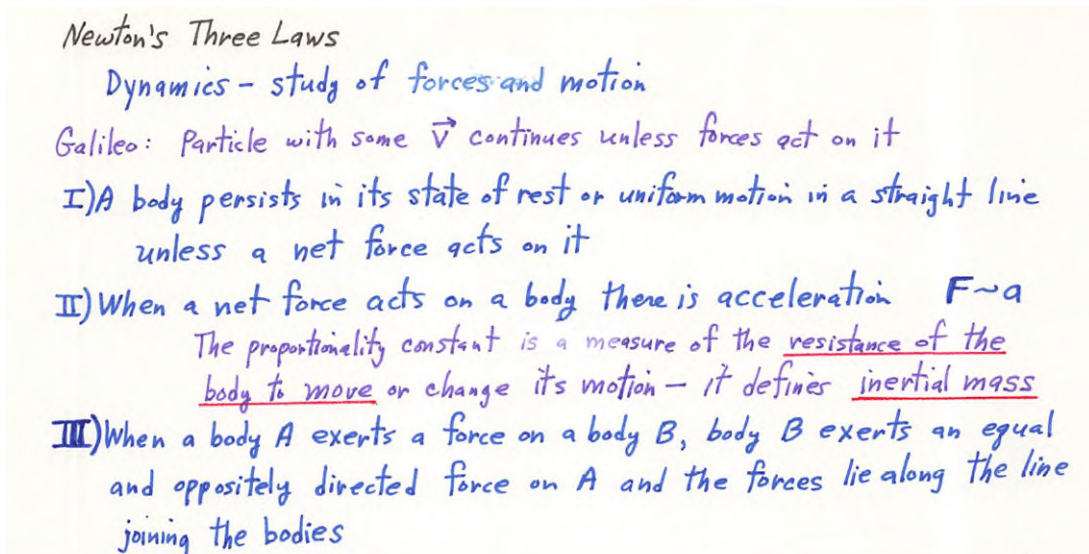 Newton's Three Laws
Dynamics - study of forces and motion
Galileo: Particle with some v⃗ continues unless forces act on it
I) A body persists in its state of rest or uniform motion in a straight line
unless a net force acts on it
II) When a net force acts on a body there is acceleration F~a
The proportionality constant is a measure of the resistance of the
body to move or change its motion - it defines inertial mass
III) When a body A exerts a force on a body B, body B exerts an equal
and oppositely directed force on A and the forces lie along the line
joining the bodies